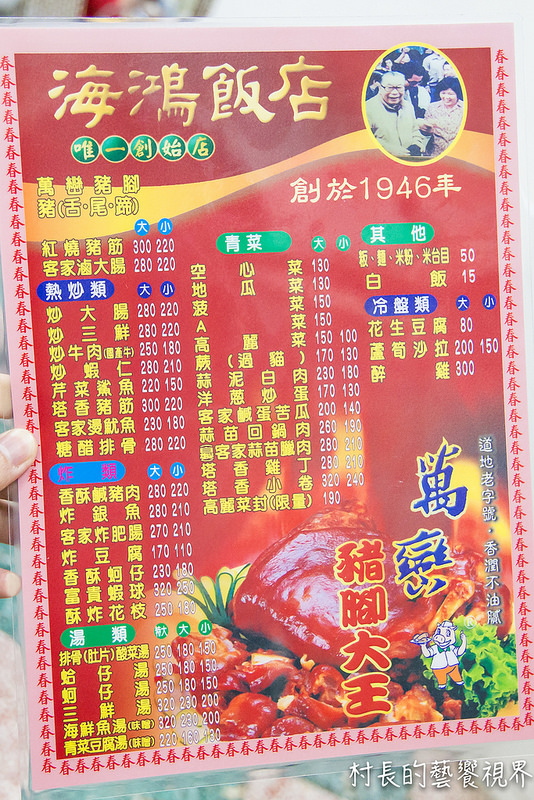 海鴻飯店
唯一創始店
創於1946年
萬巒豬腳
豬(舌·尾·蹄)
大 小
紅燒豬筋 300 220
客家滷大腸 280 220
熱炒類 大 小
炒大腸 280 220
炒三鮮 280 220
炒牛肉(國產牛) 250 180
炒蝦仁 280 210
芹菜鯊魚 220 150
塔香豬筋 300 220
客家燙魷魚 230 180
糖醋排骨 280 220
大 小
香酥鹹豬肉 280 220
炸銀魚 280 210
客家炸肥腸 270 210
炸豆腐 170 110
香酥蚵仔 230 180
富貴蝦球 320 250
酥炸花枝 250 180
湯類 特大 大 小
排骨(肚片)酸菜湯 250 180 150
蛤仔湯 250 180 150
蚵仔湯 250 180 150
三鮮湯 320 230 200
海鮮魚湯(味噌) 320 230 200
青菜豆腐湯(味噌) 220 160 130
青菜 大 小
空心菜 130
地瓜菜 130
菠菜 150
A菜 150
高麗菜 150 100
蕨(過貓)菜 170 130
蒜泥白肉 230 180
洋蔥炒蛋 170 130
客家鹹蛋苦瓜 200 140
蒜苗回鍋肉 260 190
客家蒜苗臘肉 280 210
塔香雞丁 280 210
塔香小卷 320 240
高麗菜封(限量) 190
其他
粄、麵、米粉、米台目 50
白飯 15
冷盤類 大 小
花生豆腐 80
蘆筍沙拉 200 150
醉雞 300
道地老字號,香潤不油膩
萬巒
豬腳大王
村長的藝饗視界